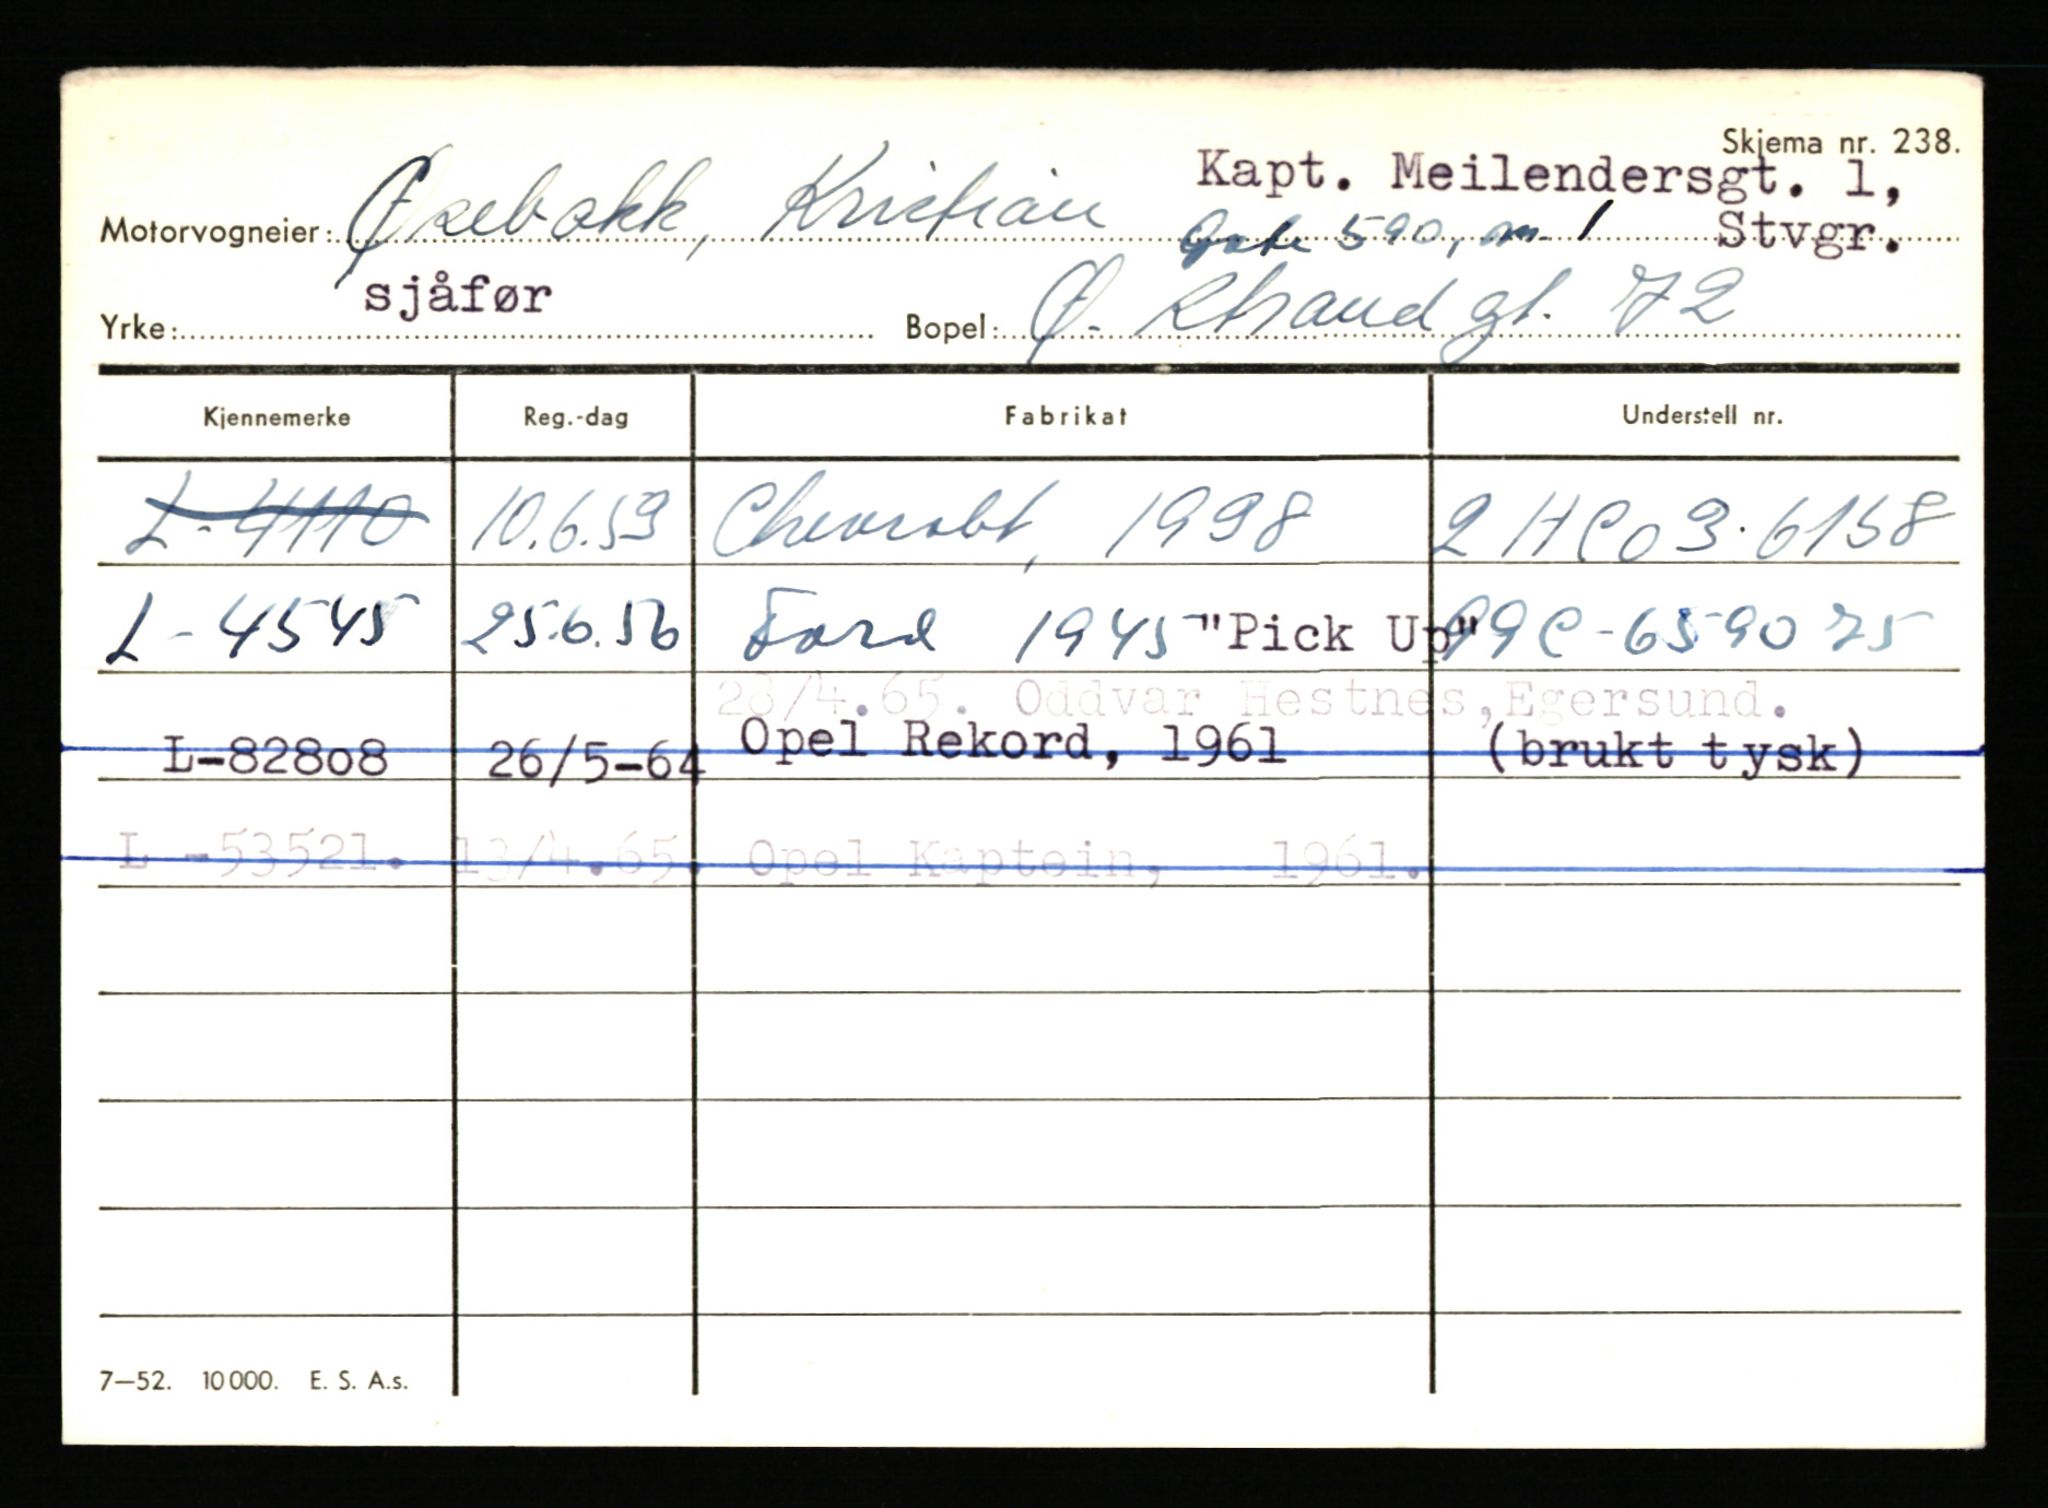 Skjema nr. 238.
Kapt. Meilendersgt. 1,
Motorvogneier: Øxebakk, Kristian Gate 590, nr. 1 Stvgr.
Yrke: sjåfør Bopel: Ø. Strandgt. 72
Kjennemerke Reg.-dag Fabrikat Understell nr.
L-4110 10.6.53 Chevrolet, 1938 2 HC03.6158
L-4545 25.6.56 Ford 1945 "Pick Up" 99C-659075
28/4.65. Oddvar Hestnes, Egersund.
L-82808 26/5-64 Opel Rekord, 1961 (brukt tysk)
L -53521. 13/4.65. Opel Kaptein, 1961.
7—52. 10000. E. S. A.s.